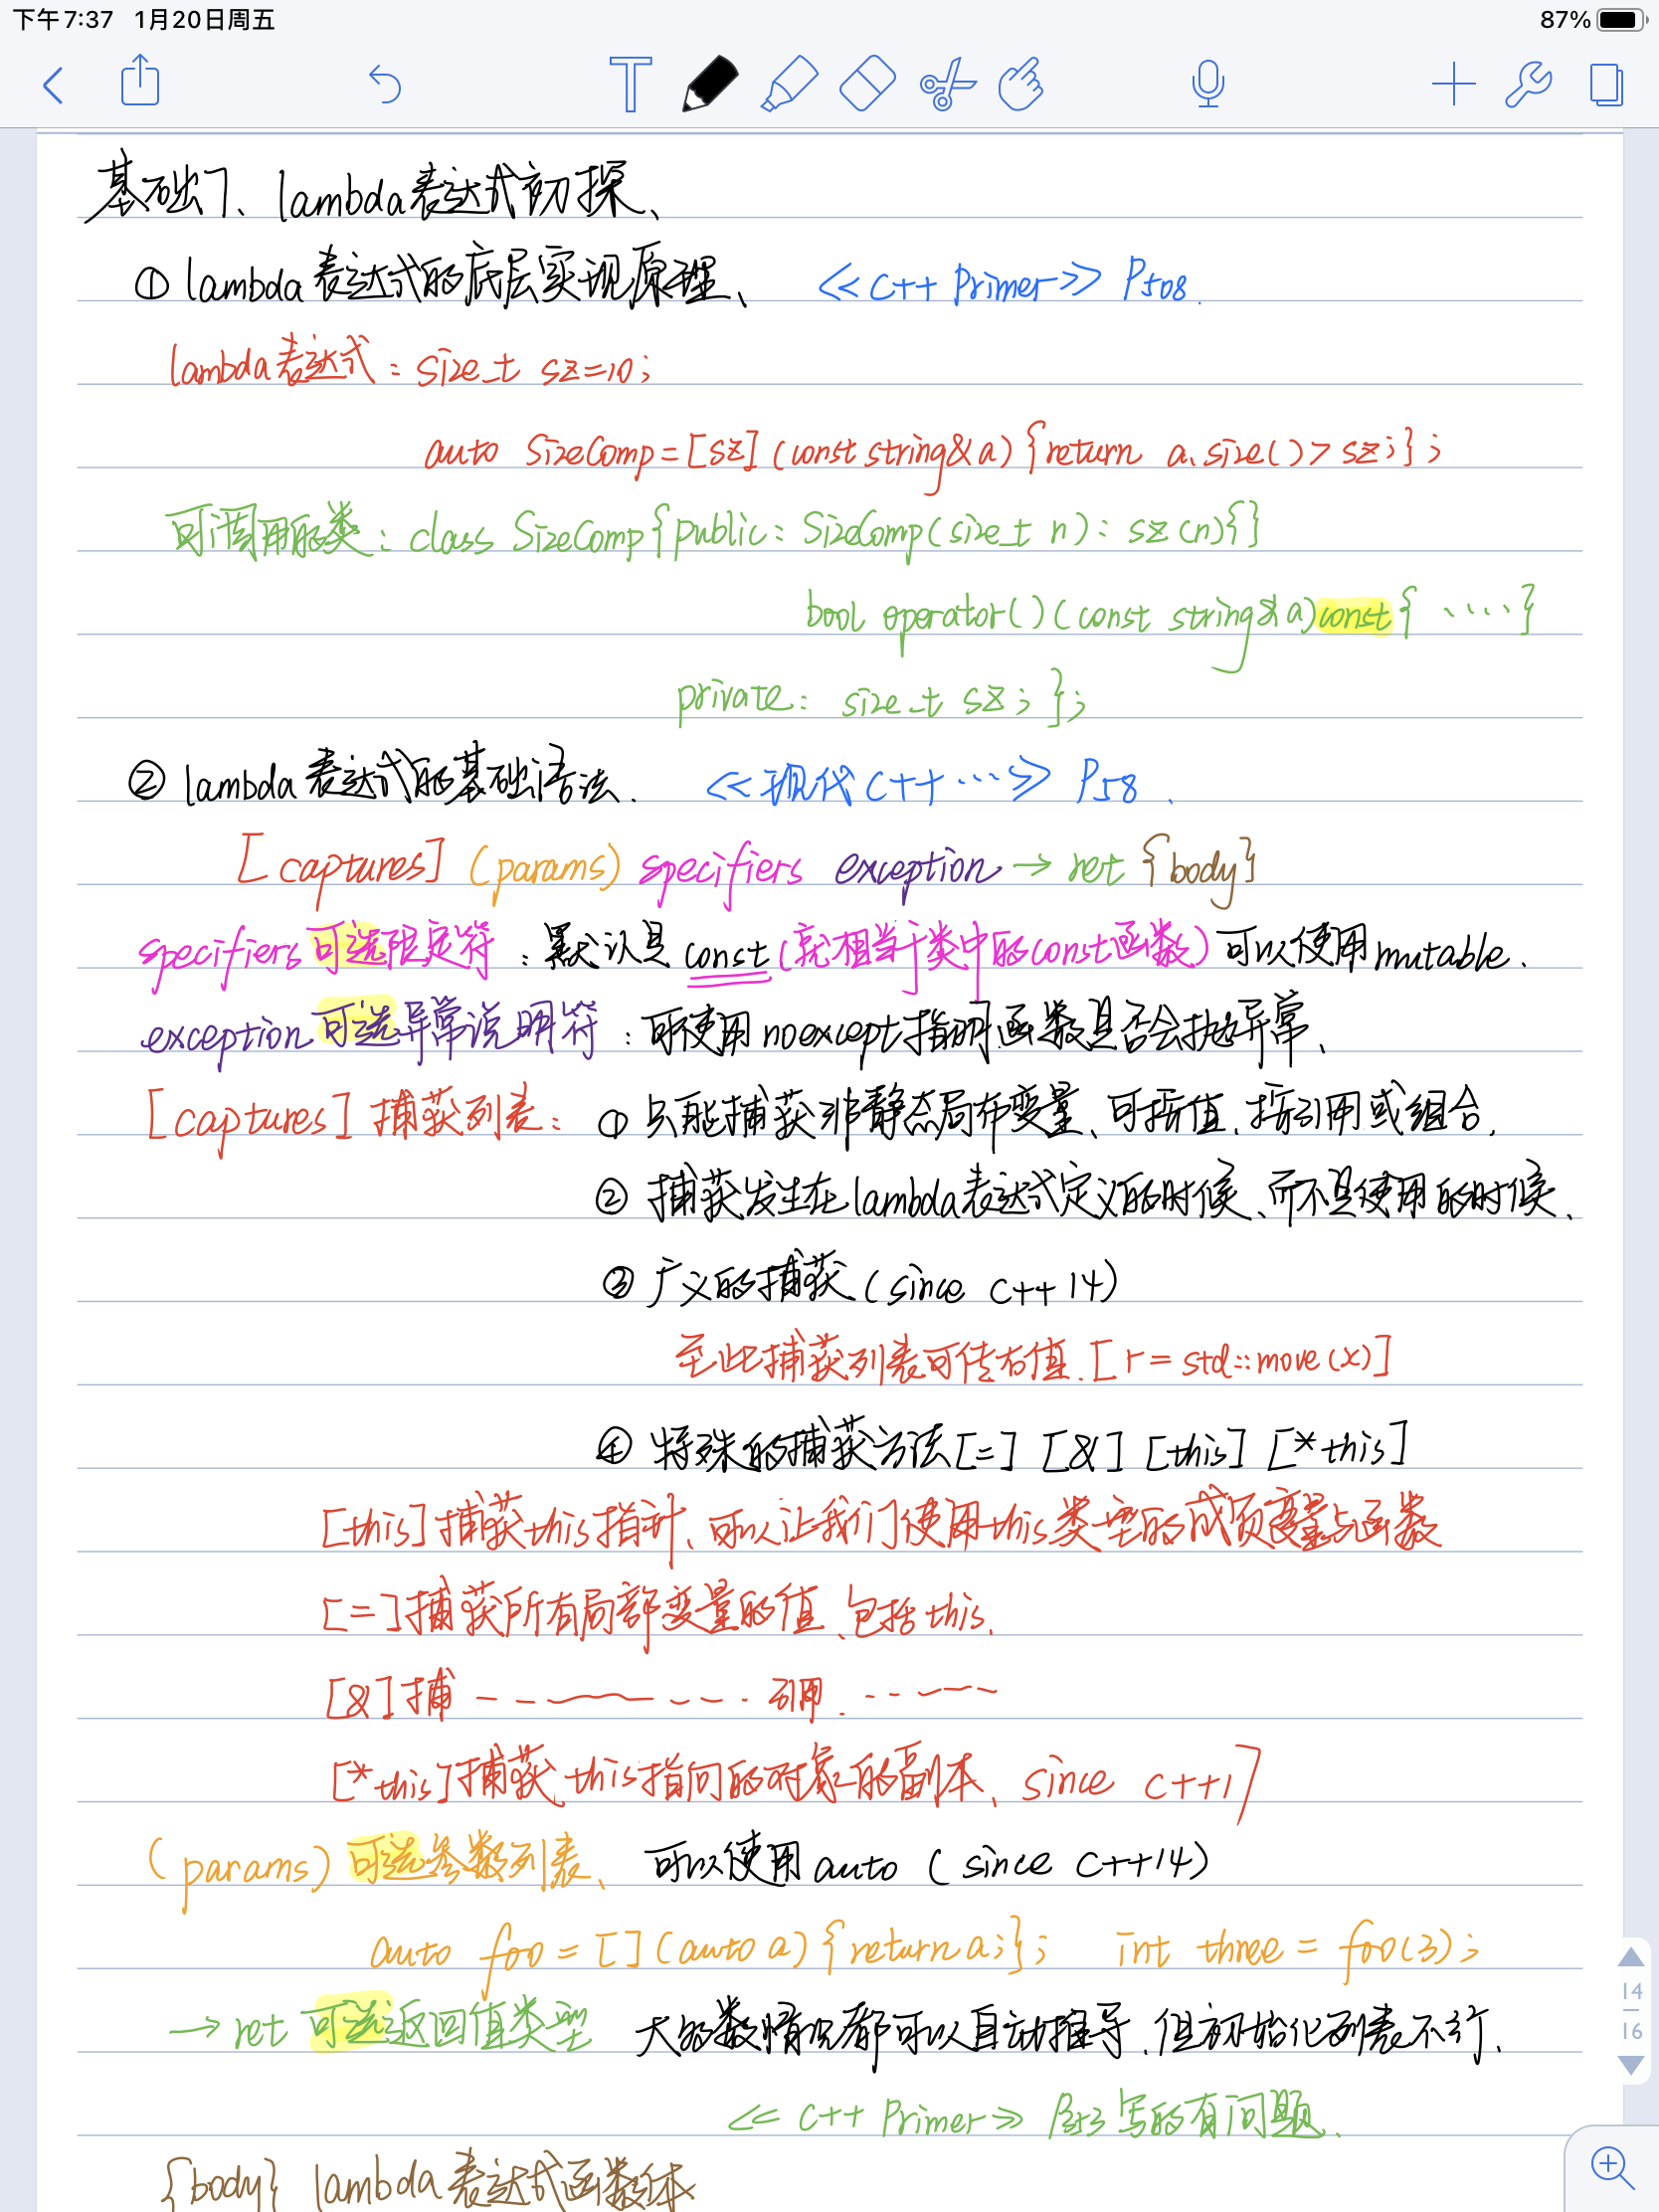 下午7:37 1月20日周五
87%
基础7、lambda表达式初探、
① lambda表达式的底层实现原理、 <<C++ Primer>> P508.
lambda表达式：size_t sz=10;
auto SizeComp=[sz](const string&a){return a.size()>sz;};
可调用的类：class SizeComp{public: SizeComp(size_t n): sz(n){}
bool operator()(const string&a)const{ ·····}
private: size_t sz; };
② lambda表达式的基础语法. <<现代C++ ···>> P58.
[captures] (params) specifiers exception → ret {body}
specifiers可选限定符：默认是const(就相当于类中的const函数)可以使用mutable.
exception可选异常说明符：可使用noexcept指明函数是否会抛异常、
[captures]捕获列表：① 只能捕获非静态局部变量、可按值、按引用或组合.
② 捕获发生在lambda表达式定义的时候、而不是使用的时候、
③ 广义的捕获(since C++14)
至此捕获列表可传右值.[r=std::move(x)]
④ 特殊的捕获方法[=] [&] [this] [*this]
[this]捕获this指针、可以让我们使用this类型的成员变量与函数
[=]捕获所有局部变量的值、包括this.
[&]捕 ------ 引用. ------
[*this]捕获this指向的对象的副本、since C++17
(params)可选参数列表、可以使用auto (since C++14)
auto foo=[](auto a){return a;}; int three = foo(3);
→ ret 可选返回值类型 大多数情况都可以自动推导.但初始化列表不行.
<<C++ Primer>> 写的有问题.
{body} lambda表达式函数体
14
16